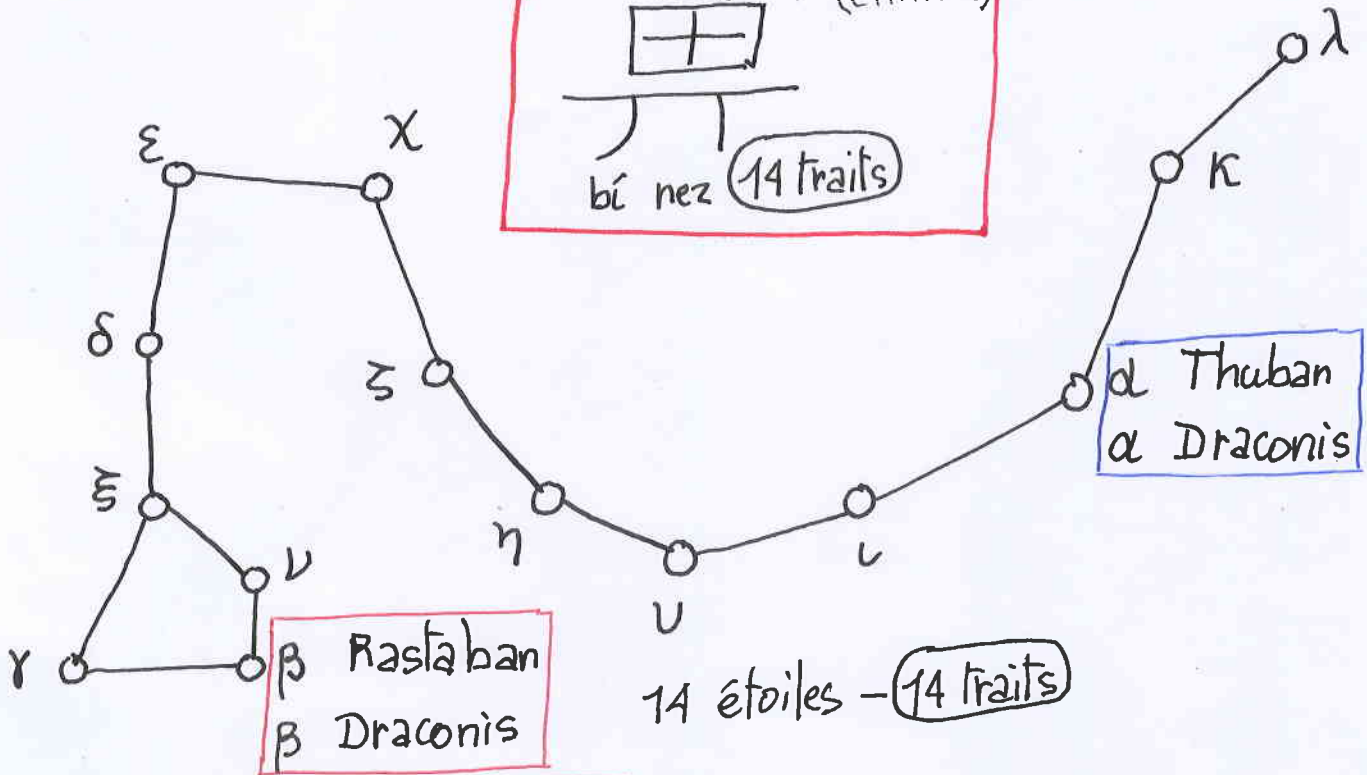 λ
bí nez 14 traits
ε
χ
κ
δ
ζ
α Thuban
α Draconis
ξ
η
ι
ν
υ
γ
β Rastaban
β Draconis
14 étoiles – 14 traits